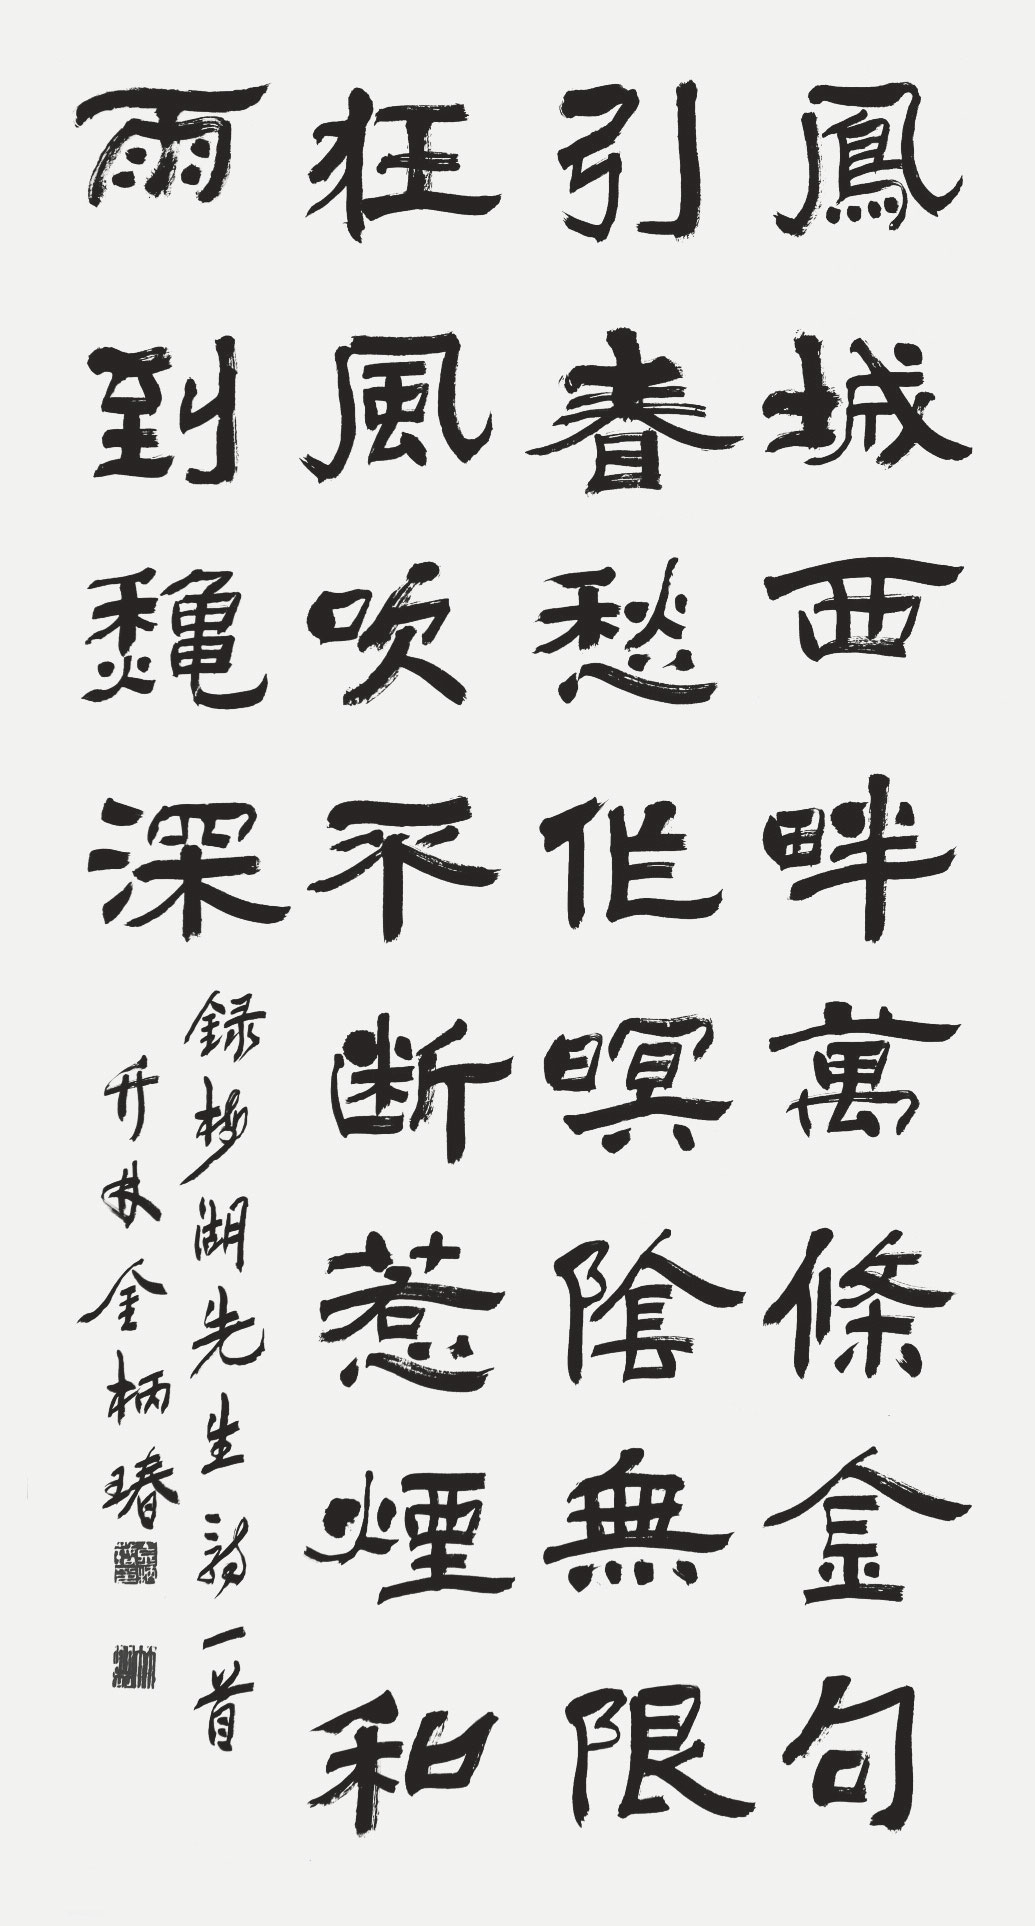 鳳城西畔萬條金句
引春愁作暝陰無限
狂風吹不断惹煙和
雨到龝深
録梅湖先生詩一首
竹林金柄瑃